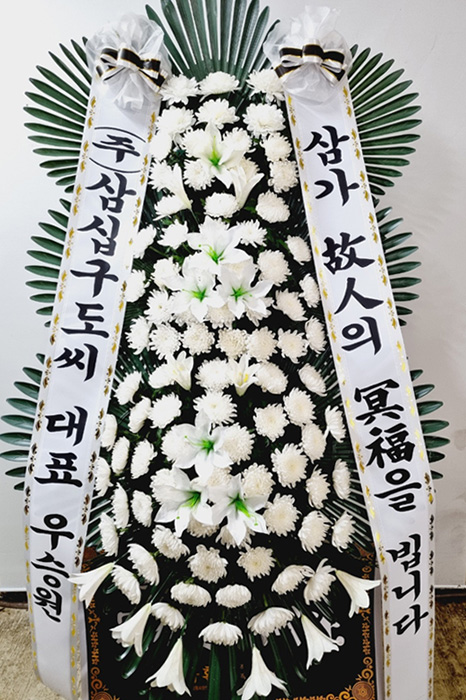 (주)삼십구도씨 대표 우승원
삼가 故人의 冥福을 빕니다